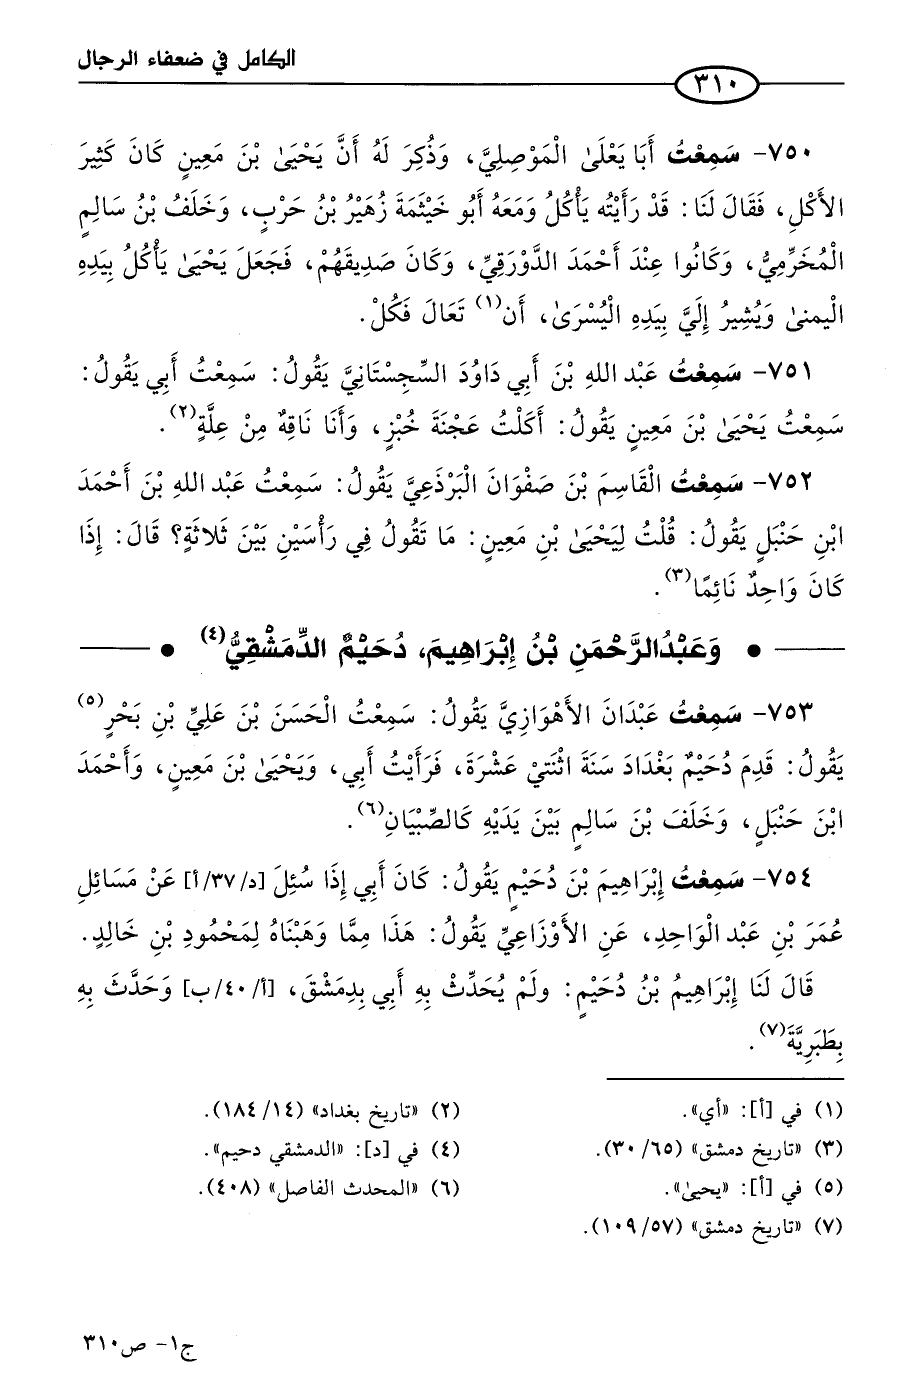 الكامل في ضعفاء الرجال
٣١٠
٧٥٠- سَمِعْتُ أَبَا يَعْلَىٰ الْمَوْصِلِيَّ، وَذُكِرَ لَهُ أَنَّ يَحْيَىٰ بْنَ مَعِينٍ كَانَ كَثِيرَ
الأَكْلِ، فَقَالَ لَنَا: قَدْ رَأَيْتُه يَأْكُلُ وَمَعَهُ أَبُو خَيْثَمَةَ زُهَيْرُ بْنُ حَرْبٍ، وَخَلَفُ بْنُ سَالِمٍ
الْمُخَرِّمِيُّ، وَكَانُوا عِنْدَ أَحْمَدَ الدَّوْرَقِيِّ، وَكَانَ صَدِيقَهُمْ، فَجَعَلَ يَحْيَىٰ يَأْكُلُ بِيَدِهِ
الْيمنىٰ وَيُشِيرُ إِلَيَّ بِيَدِهِ الْيُسْرَىٰ، أَن(١) تَعَالَ فَكُلْ.
٧٥١- سَمِعْتُ عَبْد اللهِ بْنَ أَبِي دَاوُدَ السِّجِسْتَانِيَّ يَقُولُ: سَمِعْتُ أَبِي يَقُولُ:
سَمِعْتُ يَحْيَىٰ بْنَ مَعِينٍ يَقُولُ: أَكَلْتُ عَجْنَةَ خُبْزٍ، وَأَنَا نَاقِهٌ مِنْ عِلَّةٍ(٢).
٧٥٢- سَمِعْتُ الْقَاسِمَ بْنَ صَفْوَانَ الْبَرْذَعِيَّ يَقُولُ: سَمِعْتُ عَبْد اللهِ بْنَ أَحْمَدَ
ابْنِ حَنْبَلٍ يَقُولُ: قُلْتُ لِيَحْيَىٰ بْنِ مَعِينٍ: مَا تَقُولُ فِي رَأْسَيْنِ بَيْنَ ثَلاثَةٍ؟ قَالَ: إِذَا
كَانَ وَاحِدٌ نَائِمًا(٣).
• وَعَبْدُالرَّحْمَنِ بْنُ إِبْرَاهِيمَ، دُحَيْمٌ الدِّمَشْقِيُّ(٤) •
٧٥٣- سَمِعْتُ عَبْدَانَ الأَهْوَازِيَّ يَقُولُ: سَمِعْتُ الْحَسَنَ بْنَ عَلِيِّ بْنِ بَحْرٍ(٥)
يَقُولُ: قَدِمَ دُحَيْمٌ بَغْدَادَ سَنَةَ اثْنَتَيْ عَشْرَةَ، فَرَأَيْتُ أَبِي، وَيَحْيَىٰ بْنَ مَعِينٍ، وَأَحْمَدَ
ابْنَ حَنْبَلٍ، وَخَلَفَ بْنَ سَالِمٍ بَيْنَ يَدَيْهِ كَالصِّبْيَانِ(٦).
٧٥٤- سَمِعْتُ إِبْرَاهِيمَ بْنَ دُحَيْمٍ يَقُولُ: كَانَ أَبِي إِذَا سُئِلَ [د/٣٧/أ] عَنْ مَسَائِلِ
عُمَرَ بْنِ عَبْد الْوَاحِدِ، عَنِ الأَوْزَاعِيِّ يَقُولُ: هَذَا مِمَّا وَهَبْنَاهُ لِمَحْمُودِ بْنِ خَالِدٍ.
قَالَ لَنَا إِبْرَاهِيمُ بْنُ دُحَيْمٍ: ولَمْ يُحَدِّثْ بِهِ أَبِي بِدِمَشْقَ، [أ/٤٠/ب] وَحَدَّثَ بِهِ
بِطَبَرِيَّةَ(٧).
(١) في [أ]: «أي».
(٢) «تاريخ بغداد» (١٤/ ١٨٤).
(٣) «تاريخ دمشق» (٦٥/ ٣٠).
(٤) في [د]: «الدمشقي دحيم».
(٥) في [أ]: «يحيىٰ».
(٦) «المحدث الفاصل» (٤٠٨).
(٧) «تاريخ دمشق» (٥٧/ ١٠٩).
ج١- ص٣١٠